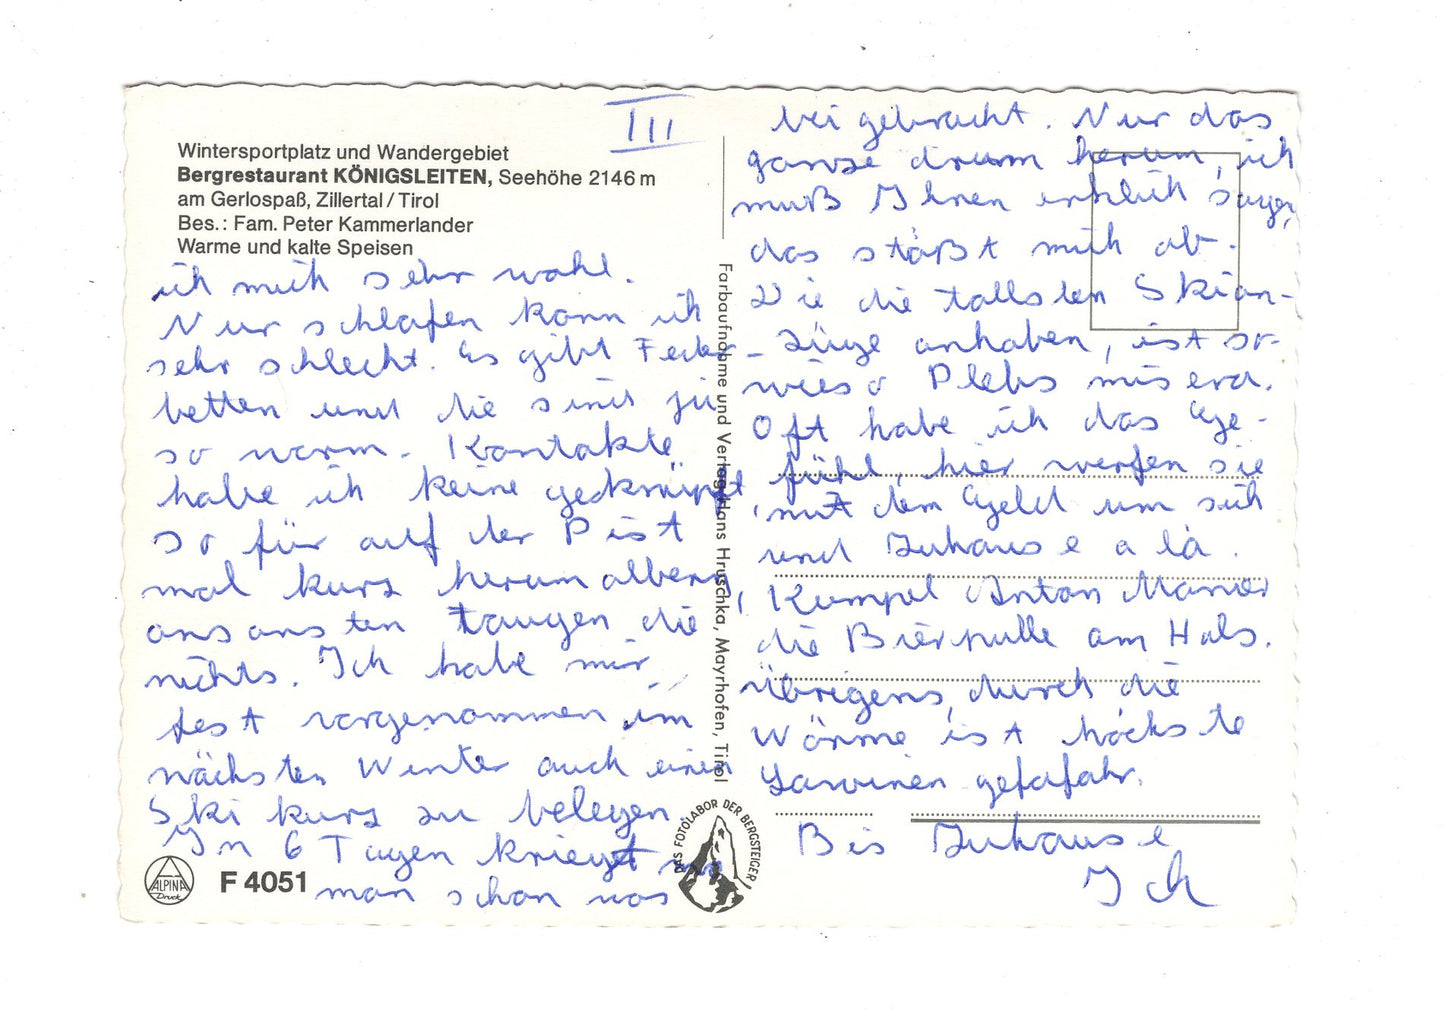 III
Wintersportplatz und Wandergebiet
Bergrestaurant KÖNIGSLEITEN, Seehöhe 2146 m
am Gerlospaß, Zillertal / Tirol
Bes.: Fam. Peter Kammerlander
Warme und kalte Speisen
ich mich sehr wohl.
Nur schlafen kann ich
sehr schlecht. Es gibt Feder-
betten und die sind ju
so warm. Kontakte
habe ich keine geknüpft,
so für auf der Pist
mal kurz herum albern,
ansonsten taugen die
nichts. Ich habe mir
fest vorgenommen im
nächsten Winter auch einen
Ski kurs zu belegen.
In 6 Tagen kriegt
man schon was
bei gebracht. Nur das
ganze drum herum, ich
muß Ihnen ehrlich sagen,
das stößt mich ab.
Die die tollsten Skian-
züge anhaben, ist so-
wieso Plebs misera.
Oft habe ich das Ge-
fühl, hier werfen sie
mit dem Geld um sich
und Zuhause a la
Kumpel Anton Manier
die Bierpulle am Hals.
Übrigens, durch die
Wärme ist höchste
Lawinen gefafahr.
Bis Zuhause
Ich
Farbaufnahme und Verlag: Hans Hruschka, Mayrhofen, Tirol
DAS FOTOLABOR DER BERGSTEIGER
ALPINA
Druck
F 4051